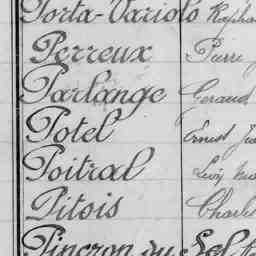 Porta-Variolo Rapha
Perreux Pierre
Parlange Geraud
Potel Ernest Ju
Poitral Levy
Pitois Charles
Pincron du Sel